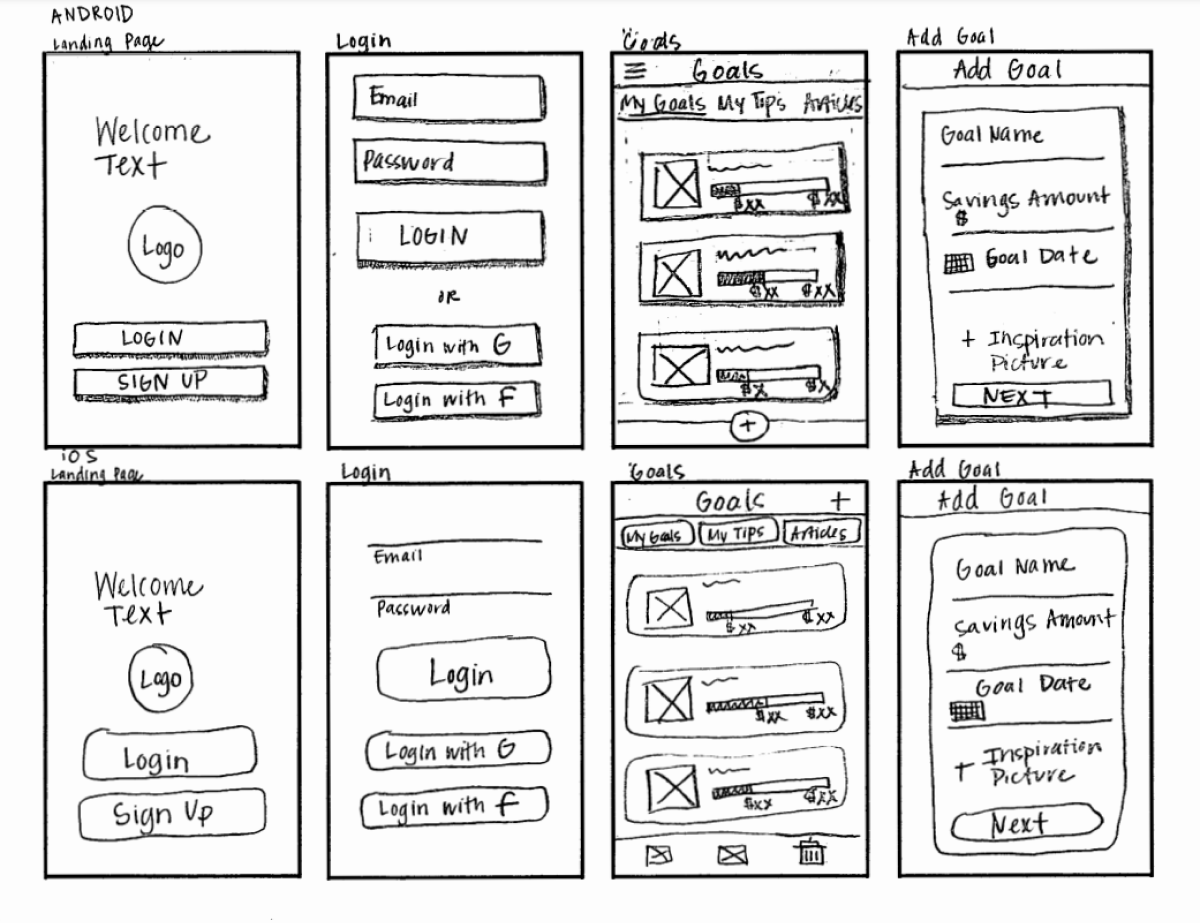 ANDROID
Landing Page
Welcome
Text
Logo
LOGIN
SIGN UP
Login
Email
Password
LOGIN
OR
Login with G
Login with f
Goals
Goals
My Goals My Tips Articles
$xx $xx
$xx $xx
$x $x
+
Add Goal
Add Goal
Goal Name
Savings Amount
$
Goal Date
+ Inspiration
Picture
NEXT
iOS
Landing Page
Welcome
Text
Logo
Login
Sign Up
Login
Email
Password
Login
Login with G
Login with f
Goals
Goals +
My Goals My Tips Articles
$xx $xx
$xx $xx
$xx $xx
Add Goal
Add Goal
Goal Name
Savings Amount
$
Goal Date
+ Inspiration
Picture
Next